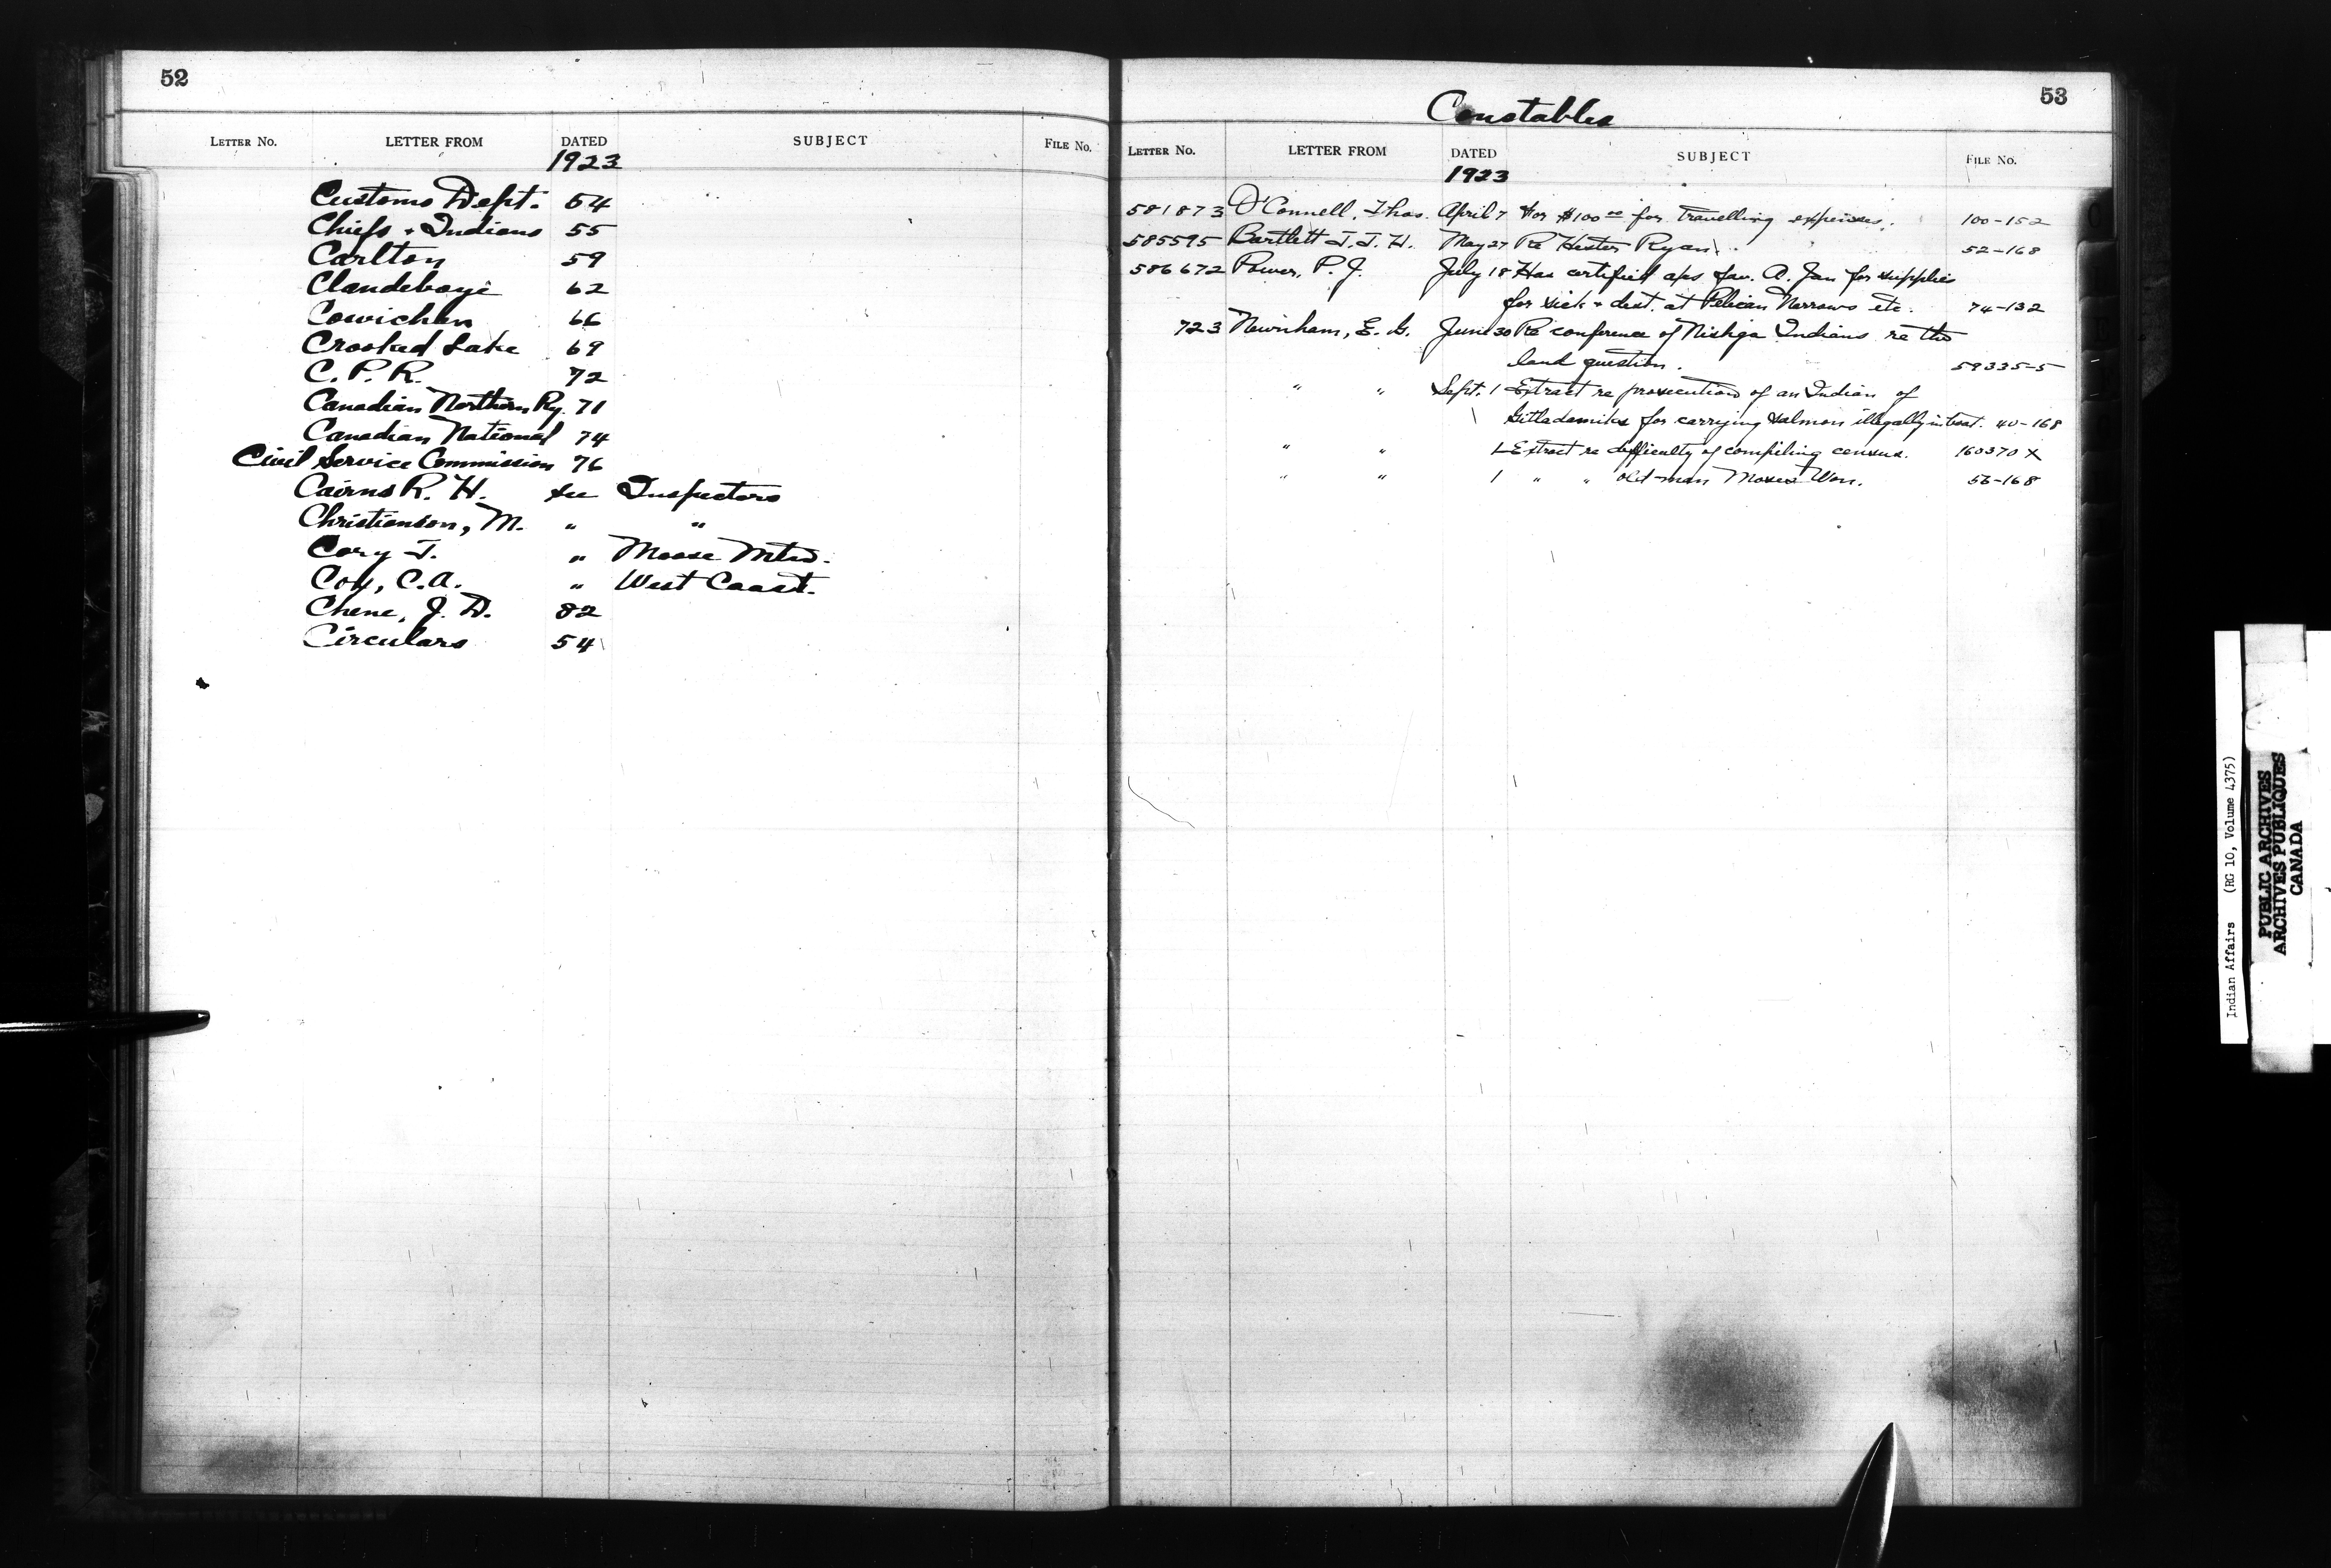 52
LETTER NO. LETTER FROM DATED SUBJECT FILE No.
1923
Customs Dept. 54
Chiefs + Indians 55
Carlton 59
Clandeboye 62
Cowichan 66
Crooked Lake 69
C. P. R. 72
Canadian Northern Ry. 71
Canadian National 74
Civil Service Commission 76
Cairns R. H. see Inspectors
Christianson, M. " "
Cory T. " Moose Mtn.
Cox, C.A. " West Coast.
Chene, J. D. 82
Circulars 54
53
Constables
LETTER NO. LETTER FROM DATED SUBJECT FILE No.
1923
581873 O'Connell, Thos. April 7 For $100.00 for travelling expenses. 100-152
585595 Bartlett J. J. H. May 27 Re Hester Ryan. 52-168
586672 Power, P. J. July 18 Has certified a/cs fav. A. Jan for supplies
for sick + dest. at Pelican Narrows etc. 74-132
723 Newnham, E. G. June 30 Re conference of Nishga Indians re the
land question. 59335-5
" " Sept. 1 Extract re prosecution of an Indian of
Gitladamiks for carrying salmon illegally in boat. 40-168
" " 1 Extract re difficulty of compiling census. 160370 X
" " 1 " " old man Moses Won. 56-168
Indian Affairs (RG 10, Volume 4375)
PUBLIC ARCHIVES
ARCHIVES PUBLIQUES
CANADA